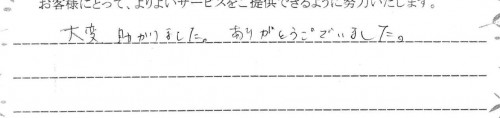 お客様にとって、よりよいサービスをご提供できるように努力いたします。
大変助かりました。ありがとうございました。